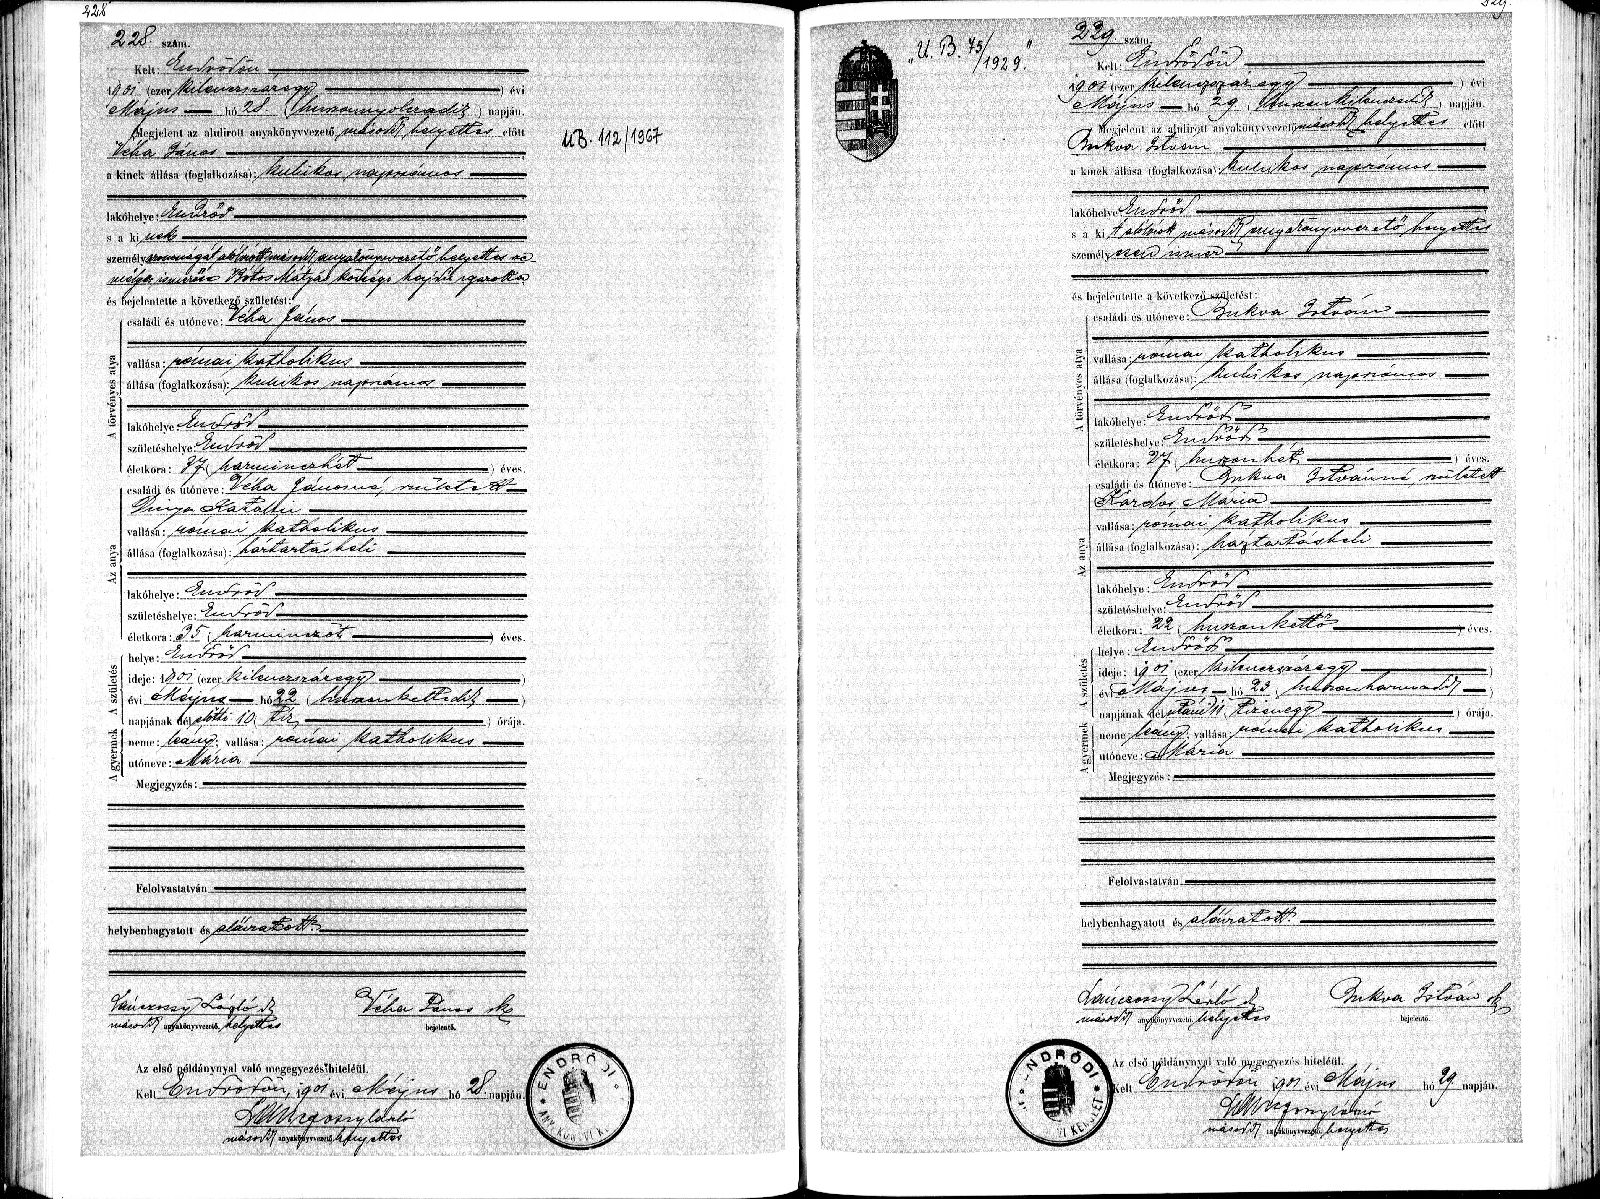 228
228 szám.
Kelt: Endrődön
1901 (ezer kilenczszázegy) évi
Május hó 28. (huszonnyolczadik) napján.
Megjelent az alulirott anyakönyvvezető másod helyettes előtt
Véha János
a kinek állása (foglalkozása): kubikos napszámos
lakóhelye: Endrőd
s a ki nek
személyazonosságát alólirott másod anyakönyvvezető helyettes
Botos Mátyás községi hajdú igazolta
és bejelentette a következő születést:
A törvényes atya
családi és utóneve: Véha János
vallása: római katholikus
állása (foglalkozása): kubikos napszámos
lakóhelye: Endrőd
születéshelye: Endrőd
életkora: 37 (harminczhét) éves.
Az anya
családi és utóneve: Véha Jánosné, született
Dinya Katalin
vallása: római katholikus
állása (foglalkozása): háztartásbeli
lakóhelye: Endrőd
születéshelye: Endrőd
életkora: 35 (harminczöt) éves.
A születés
helye: Endrőd
ideje: 1901 (ezer kilenczszázegy)
évi Május hó 22 (huszonkettedik)
napjának dél előtti 10 (tíz) órája.
A gyermek
neme: leány; vallása: római katholikus
utóneve: Mária
Megjegyzés:
Felolvastatván
helybenhagyatott és aláiratott.
Lánczossy László
másod anyakönyvvezető helyettes
Véha János
bejelentő.
Az első példánynyal való megegyezés hiteléül.
Kelt Endrődön, 1901 évi Május hó 28. napján.
másod anyakönyvvezető helyettes
ENDRŐDI
UB. 112/1967
229.
"U. B. 75/1929."
229. szám.
Kelt: Endrődön
1901 (ezer kilenczszázegy) évi
Május hó 29 (huszonkilenczedik) napján.
Megjelent az alulirott anyakönyvvezető másod helyettes előtt
Bukva István
a kinek állása (foglalkozása): kubikos napszámos
lakóhelye: Endrőd
s a ki t alólirott másod anyakönyvvezető helyettes
személyesen ismer
és bejelentette a következő születést:
A törvényes atya
családi és utóneve: Bukva István
vallása: római katholikus
állása (foglalkozása): kubikos napszámos
lakóhelye: Endrőd
születéshelye: Endrőd
életkora: 27 (huszonhét) éves.
Az anya
családi és utóneve: Bukva Istvánné született
Kardos Mária
vallása: római katholikus
állása (foglalkozása): háztartásbeli
lakóhelye: Endrőd
születéshelye: Endrőd
életkora: 22 (huszonkettő) éves.
A születés
helye: Endrőd
ideje: 1901 (ezer kilenczszázegy)
évi Május hó 23. (huszonharmadik)
napjának dél utáni 11 (tizenegy) órája.
A gyermek
neme: leány; vallása: római katholikus
utóneve: Mária
Megjegyzés:
Felolvastatván.
helybenhagyatott és aláiratott.
Lánczossy László
másod anyakönyvvezető helyettes
Bukva István
bejelentő.
Az első példánynyal való megegyezés hiteléül.
Kelt Endrődön 1901 évi Május hó 29 napján.
másod anyakönyvvezető helyettes